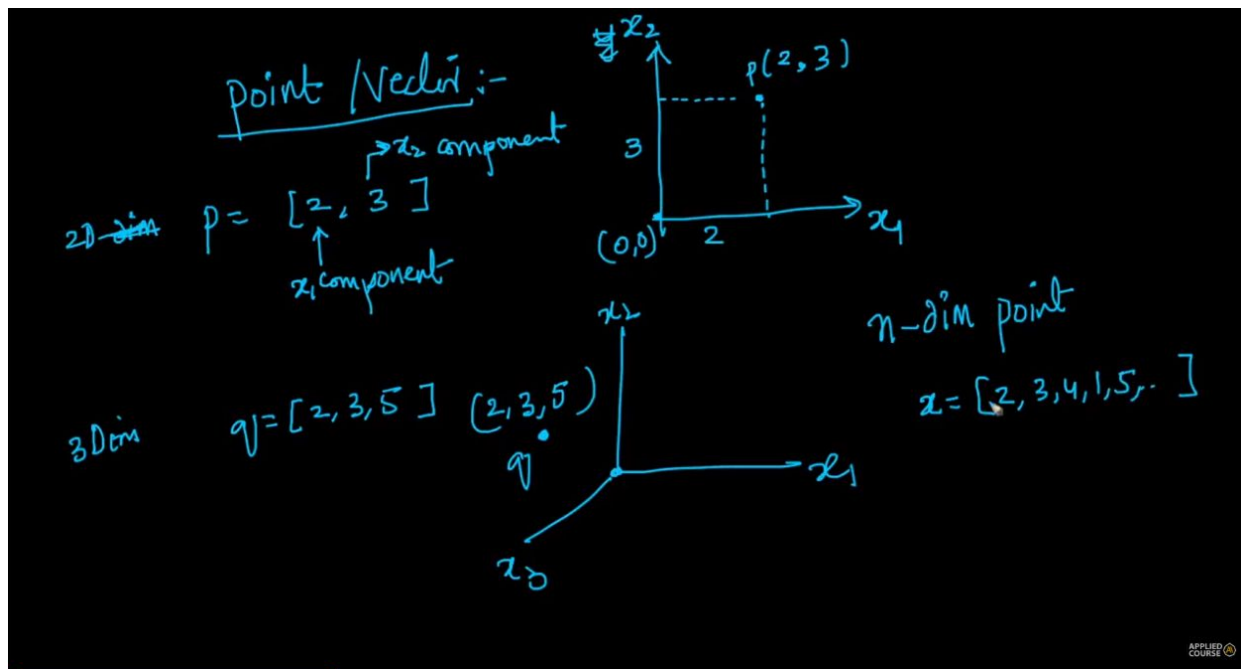 point / Vector :-
x₂ component
2D-dim p = [2, 3]
x₁ component
x₂
p(2, 3)
3
(0,0)
2
x₁
n-dim point
x = [2, 3, 4, 1, 5, .. ]
3Dim q = [2, 3, 5] (2, 3, 5)
q
x₂
x₁
x₃
APPLIED
COURSE